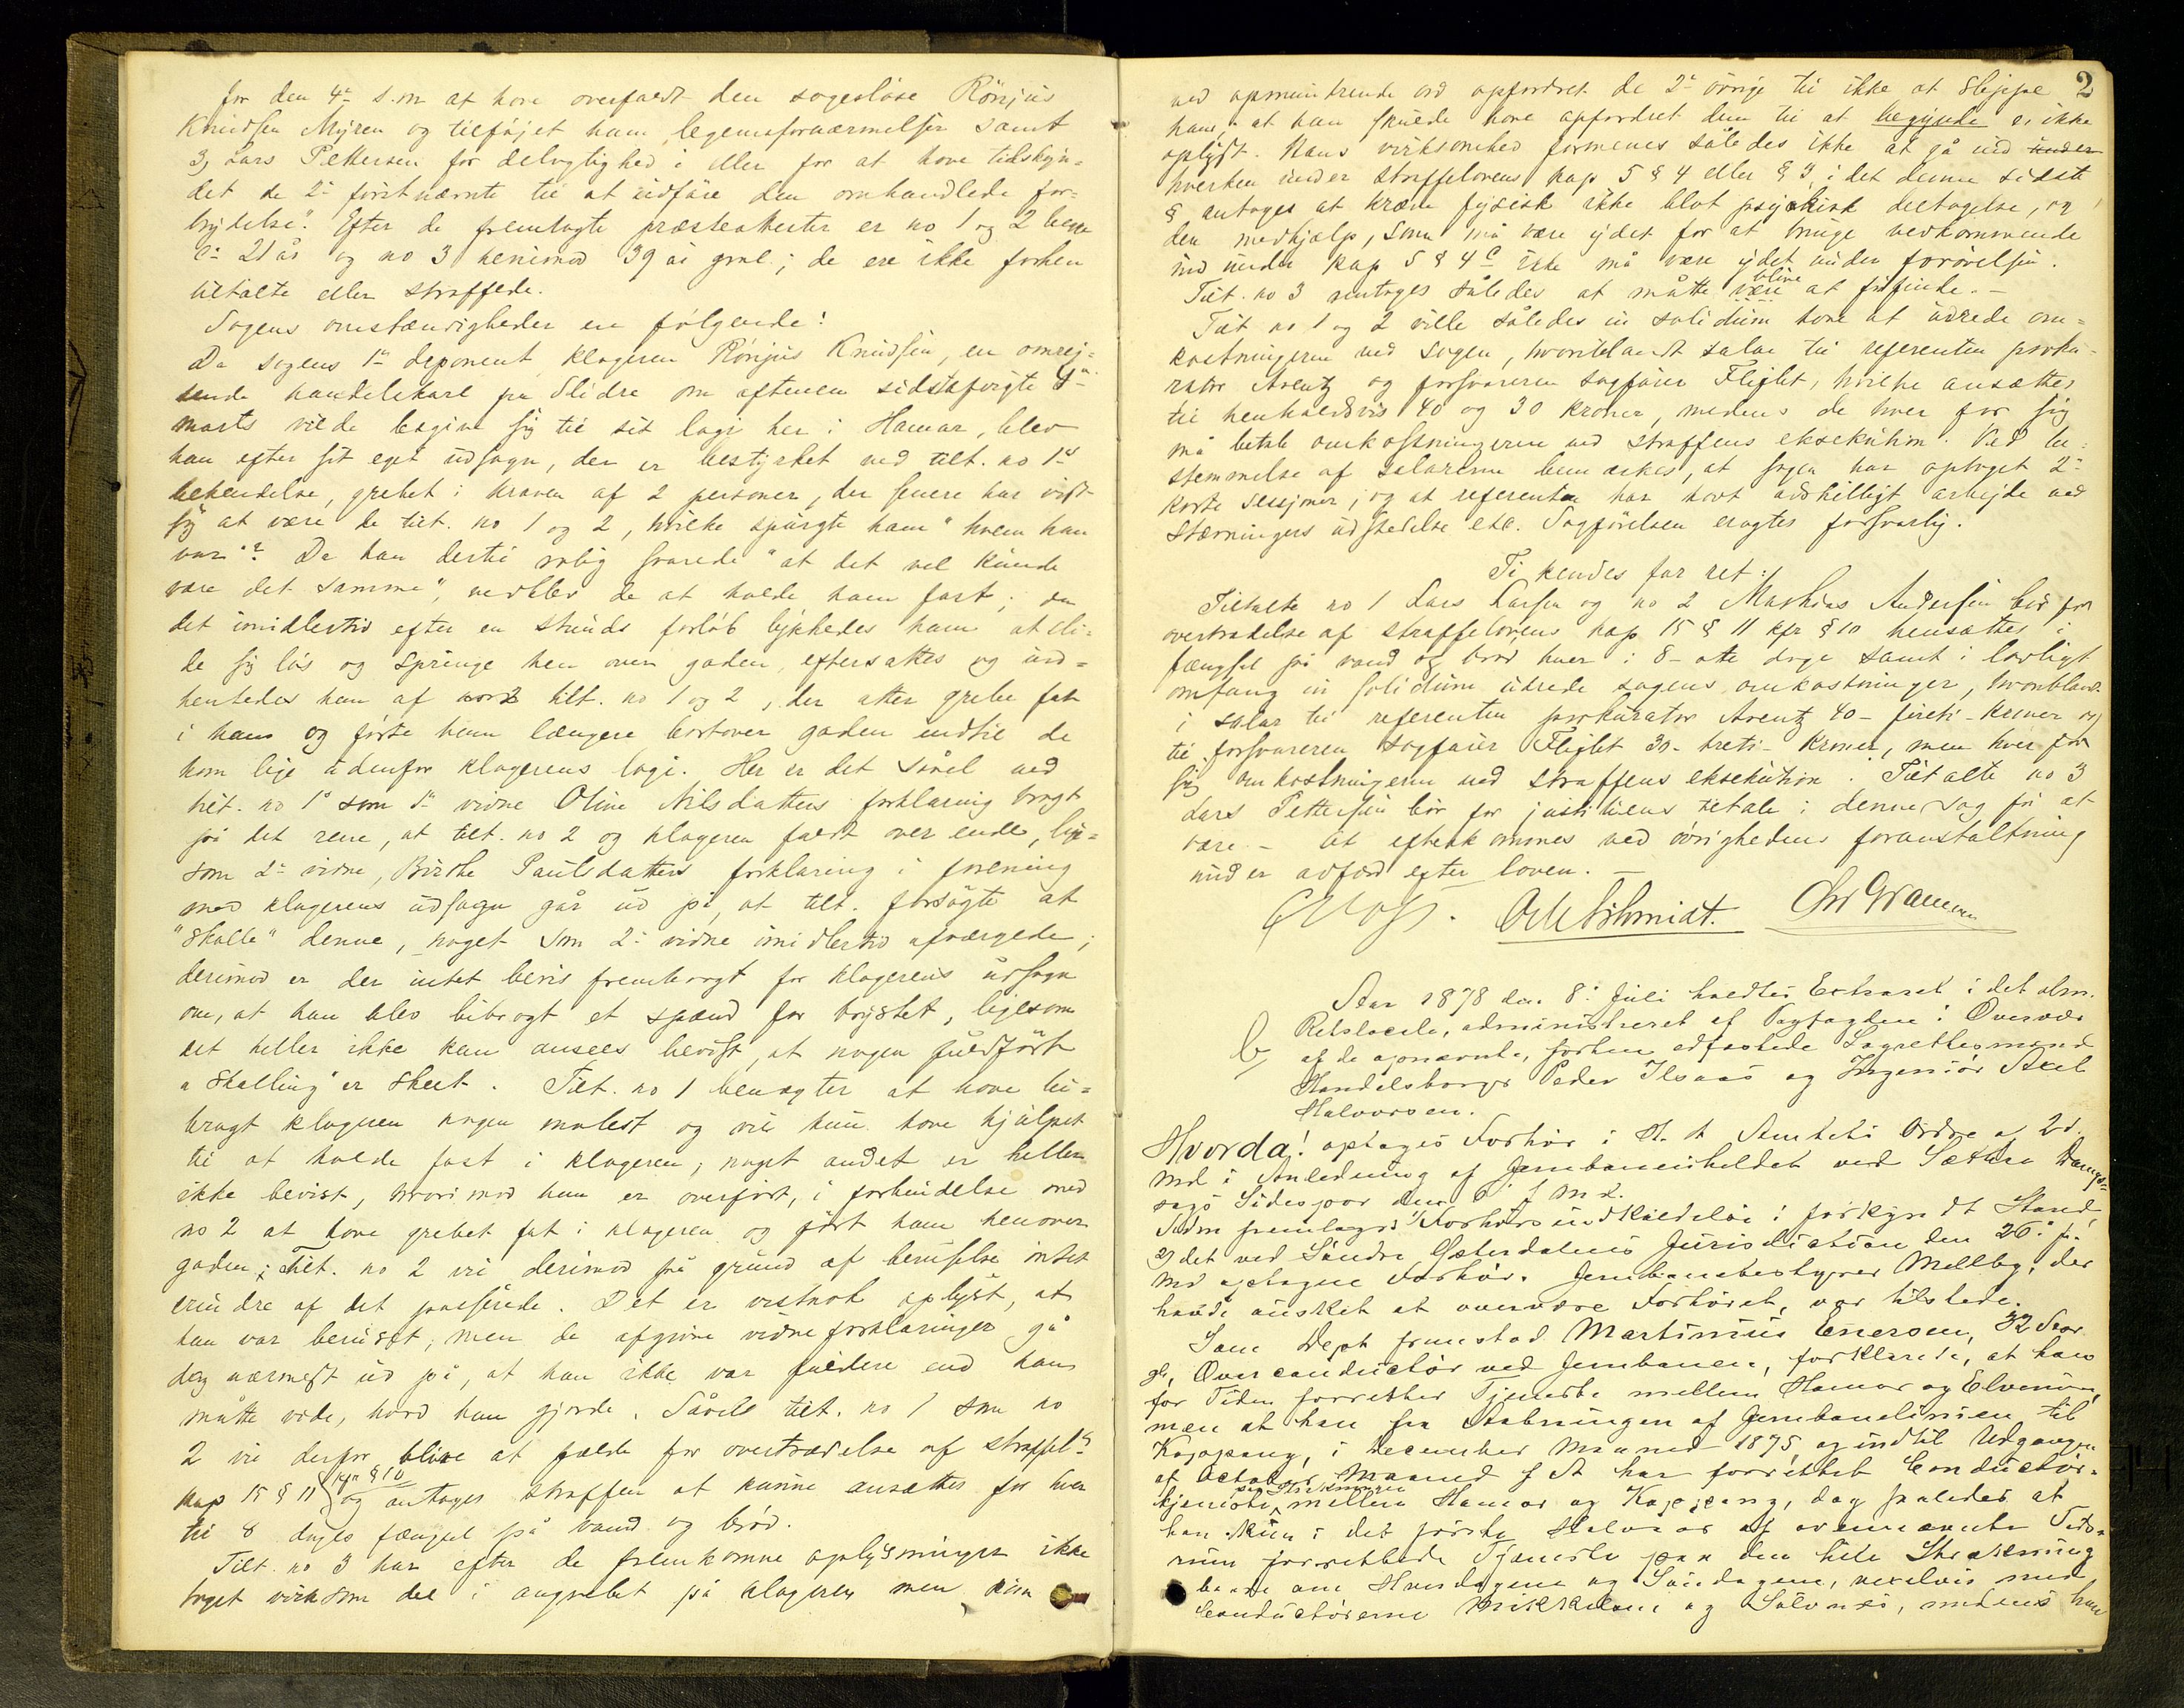 for den 4de s.m. at have overfaldt den sagesløse Rönjus
Knudsen Myren og tilføjet ham legemsfornærmelser samt
3, Lars Pettersen for delagtighed i eller for at have tilskyn-
det de 2de førstnævnte til at udføre den omhandlede for-
brydelse". Efter de fremlagte præsteattester er no 1 og 2 begge
21 år og no 3 henimod 39 år gml.; de ere ikke forhen
tiltalte eller straffede.
Sagens omstændigheder er følgende:
Da sagens 1ste deponent, klageren Rönjus Knudsen, en omrej-
sende handelskarl fra Slidre om aftenen sidstafvigte 4de
marts vilde begive sig til sit logi her i Hamar, blev
han efter sit eget udsagn, der er bestyrket ved tilt. no 1's
bekendelse, grebet i kraven af 2 personer, der senere har vist
sig at være de tilt. no 1 og 2, hvilke spurgte ham "hvem han
var"? Da han dertil rolig svarede "at det vel kunde
være det samme", vedblev de at holde ham fast; da
det imidlertid efter en stunds forløb lykkedes ham at sli-
de sig løs og springe hen over gaden, eftersattes og ind-
hentedes han af tilt. no 1 og 2, der atter grebe fat
i ham og førte ham længere bortover gaden indtil de
kom lige udenfor klagerens logi. Her er det såvel ved
tilt. no 1s som 1ste vidne Oline Nilsdatters forklaring bragt
på det rene, at tilt. no 2 og klageren faldt over ende, lige-
som 2det vidne, Birthe Paulsdatters forklaring i forening
med klagerens udsagn går ud på, at tilt. forsøgte at
"skalle" denne, noget som 2det vidne imidlertid afværgede;
derimod er der intet bevis frembragt for klagerens udsagn
om, at han blev bibragt et spænd for brystet, ligesom
det heller ikke kan ansees bevist, at nogen fuldført
"skalling" er skeet. Tilt. no 1 benægter at have bi-
bragt klageren nogen molest og vil kun have hjulpet
til at holde fast i klageren; noget andet er heller
ikke bevist, hvorimod han er overført, i forbindelse med
no 2 at have grebet fat i klageren og ført ham henover
gaden; Tilt. no 2 vil derimod på grund af beruselse intet
erindre af det passerede. Det er vistnok oplyst, at
han var beruset, men de afgivne vidneforklaringer gå
dog nærmest ud på, at han ikke var fuldere end han
måtte vide, hvad han gjorde. Såvel tilt. no 1 som no
2 vil derfor blive at fælde for overtrædelse af straffel.s
kap 15 § 11 kfr § 10 og antages straffen at kunne ansættes for hver
til 8 dages fængsel på vand og brød.
Tilt. no 3 har efter de fremkomne oplysninger ikke
taget virksom del i angrebet på klageren men kun
2
ved opmuntrende ord opfordret de 2de øvrige til ikke at slippe
ham; at han skulde have opfordret dem til at begynde er ikke
oplyst. Hans virksomhed formenes således ikke at gå ind under
hverken under straffelovens kap 5 § 4 eller § 3, i det denne sidste
§ antages at kræve fysisk ikke blot psykisk deltagelse, og
den medhjælp, som må være ydet for at bringe vedkommende
ind under kap 5 § 4 ikke må være ydet under forøvelsen.
Tilt. no 3 antages således at måtte være blive at frifinde. –
Tilt no 1 og 2 ville således in solidum have at udrede om-
kostningerne ved sagen, hvoriblandt salær til referenten proku-
rator Arentz og forsvareren sagfører Flejlet, hvilke ansættes
til henholdsvis 40 og 30 kroner, medens de hver for sig
må betale omkostningerne ved straffens eksekution. Ved be-
stemmelse af salærerne bemærkes, at sagen har optaget 2de
korte sessjoner, og at referenten har havt adskilligt arbejde ved
stævningers udstedelse etc. Sagførelsen eragtes forsvarlig.
Ti kendes for ret:
Tiltalte no 1 Lars Larsen og no 2 Mathias Andersen bør for
overtrædelse af straffelovens kap 15 § 11 kfr § 10 hensættes i
fængsel på vand og brød hver i 8 – otte dage samt i lovligt
omfang in solidum udrede sagens omkostninger, hvoribland-
i salær til referenten prokurator Arentz 40 – fireti – kroner og
til forsvareren sagfører Flejlet 30 – treti – kroner, men hver for
sig omkostningerne ved straffens eksekution. Tiltalte no 3
Lars Pettersen bør for justitiens tiltale i denne sag fri at
være. – At efterkommes ved øvrighedens foranstaltning
under adfærd efter loven. –
Schmidt.
Aar 1878 den 8de Juli holdtes Extraret i det alm.
Retslocale, administreret af Byfogden i Overvær
af de opnævnte, forhen edfæstede Lagrettesmænd
Handelsborger Peder Ilsaas og Ingeniør Axel
Halvorsen.
Hvorda! optages Forhør i H. t Amtets Ordre af 2d.
Md i Anledning af Jernbaneuheldet ved Sætre Damp-
sags Sidespor den 6te f. Md.
Siden fremlagdes 1) Forhørsindkaldelse i forkyndt Stand,
2) det ved Søndre Østerdalens Jurisdiction den 26de f.
Md optagne Forhør. Jernbanebestyrer Mellby, der
havde ønsket at overvære Forhøret, var tilstede.
Som Dept fremstod Martinius Enersen, 32 Aar
gl., Overconductør ved Jernbanen, forklarede, at han
for Tiden forretter Tjeneste mellem Hamar og Elverum,
men at han fra Aabningen af Jernbanelinien til
Koppang, i December Maaned 1875 og indtil Udgangen
af October Maaned f A har forrettet Conductør-
tjeneste paa Strækningen mellem Hamar og Koppang, dog saaledes at
han kun i det første Halvaar af ovennævnte Tids-
rum forrettede Tjeneste paa den hele Strækning
baade om Hverdagene og Søndagene, vexelvis med
Conductørerne Mikkelsen og Sølvnes, medens han